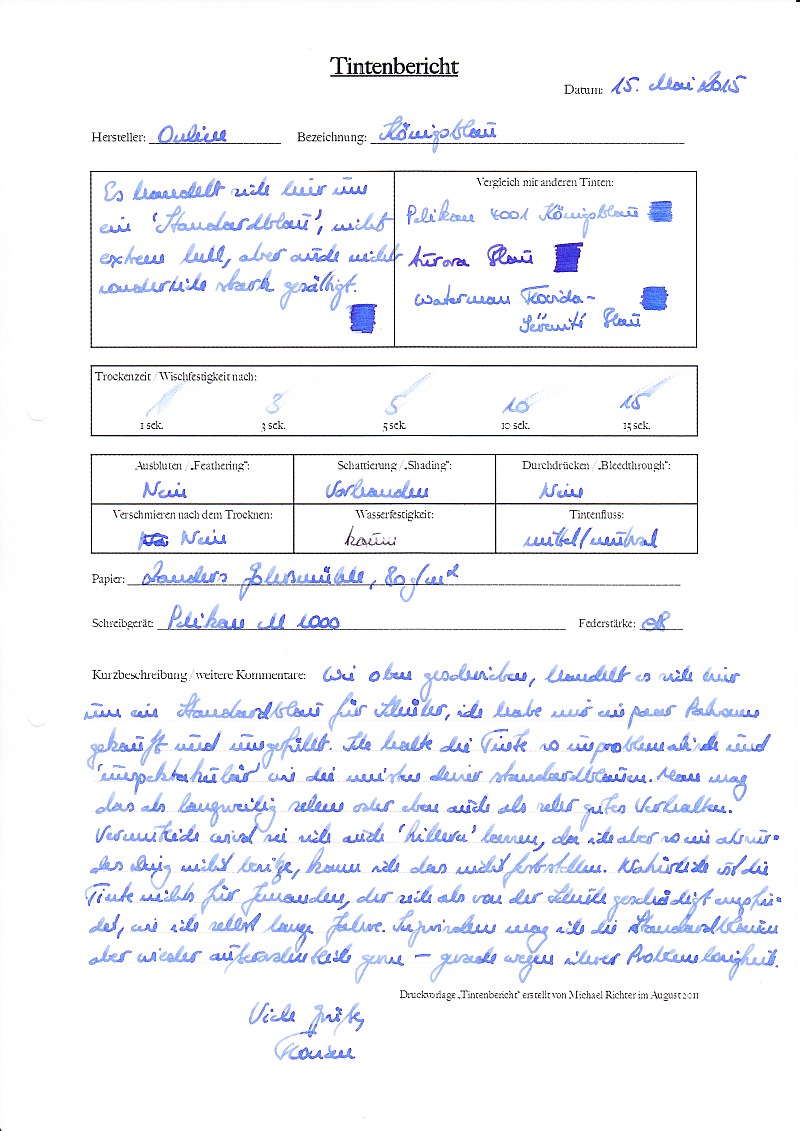 Tintenbericht
Datum: 15. Mai 2015
Hersteller: Online Bezeichnung: Königsblau
Es handelt sich hier um
ein 'Standardblau', nicht
extrem hell, aber auch nicht
sonderlich stark gesättigt.
Vergleich mit anderen Tinten:
Pelikan 4001 Königsblau
Aurora Blau
Waterman Florida-
Sérénité Blau
Trockenzeit / Wischfestigkeit nach:
1 3 5 10 15
1 sek. 3 sek. 5 sek. 10 sek. 15 sek.
Ausbluten / „Feathering": Schattierung / „Shading": Durchdrücken / „Bleedthrough":
Nein Vorhanden Nein
Verschmieren nach dem Trocknen: Wasserfestigkeit: Tintenfluss:
Nein kaum mittel/neutral
Papier: Zanders Gohrsmühle, 80 g/m²
Schreibgerät: Pelikan M 1000 Federstärke: OB
Kurzbeschreibung / weitere Kommentare: Wie oben geschrieben, handelt es sich hier
um ein Standardblau für Schüler, ich habe mir ein paar Patronen
gekauft und umgefüllt. Ich halte die Tinte so unproblematisch und
'unspektakulär' wie die meisten dieser standardblauen. Man mag
das als langweilig sehen oder eben auch als sehr gutes Verhalten.
Vermutlich wird sie sich auch 'killern' lassen, da ich aber so ein abwür-
des Ding nicht besitze, kann ich das nicht feststellen. Natürlich ist die
Tinte nichts für Jemanden, der sich als von der Schule geschädigt empfin-
det, wie ich selbst lange Jahre. Inzwischen mag ich die Standardblauen
aber wieder außerordentlich gerne – gerade wegen ihrer Problemlosigkeit.
Druckvorlage „Tintenbericht" erstellt von Michael Richter im August 2011
Viele Grüße,
Florian